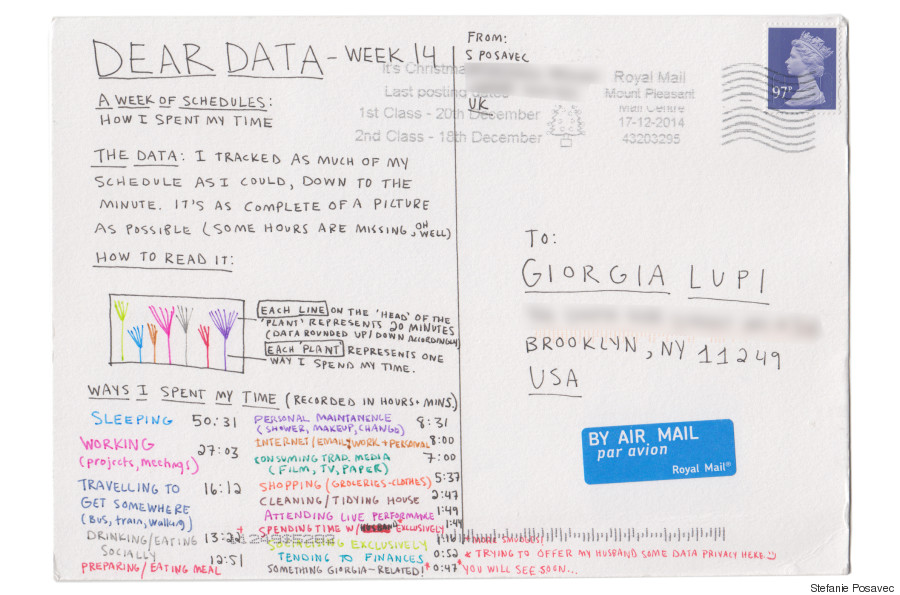 DEAR DATA - WEEK 14
A WEEK OF SCHEDULES:
HOW I SPENT MY TIME
THE DATA: I TRACKED AS MUCH OF MY
SCHEDULE AS I COULD, DOWN TO THE
MINUTE. IT'S AS COMPLETE OF A PICTURE
AS POSSIBLE (SOME HOURS ARE MISSING, OH WELL)
HOW TO READ IT:
EACH LINE ON THE 'HEAD' OF THE
'PLANT' REPRESENTS 20 MINUTES
(DATA ROUNDED UP/DOWN ACCORDINGLY)
EACH 'PLANT' REPRESENTS ONE
WAY I SPEND MY TIME.
WAYS I SPENT MY TIME (RECORDED IN HOURS + MINS)
SLEEPING 50:31
WORKING 27:03
(projects, meetings)
TRAVELLING TO 16:12
GET SOMEWHERE
(Bus, train, walking)
DRINKING/EATING 13:22*
SOCIALLY
PREPARING/EATING MEAL 12:51
PERSONAL MAINTANENCE 8:31
(SHOWER, MAKEUP, CHANGE)
INTERNET/EMAIL: WORK + PERSONAL 8:00
CONSUMING TRAD. MEDIA 7:00
(FILM, TV, PAPER)
SHOPPING (GROCERIES-CLOTHES) 5:37
CLEANING/TIDYING HOUSE 2:47
ATTENDING LIVE PERFORMANCE 1:49
SPENDING TIME W/ EXCLUSIVELY 1:44
EXCLUSIVELY
TENDING TO FINANCES 0:52
SOMETHING GIORGIA-RELATED! * 0:47
* TRYING TO OFFER MY HUSBAND SOME DATA PRIVACY HERE
*YOU WILL SEE SOON...
FROM:
S POSAVEC
UK
It's Christmas
Last posting dates
1st Class - 20th December
2nd Class - 18th December
Royal Mail
Mount Pleasant
Mail Centre
17-12-2014
43203295
97P
TO:
GIORGIA LUPI
BROOKLYN, NY 11249
USA
BY AIR MAIL
par avion
Royal Mail®
Stefanie Posavec